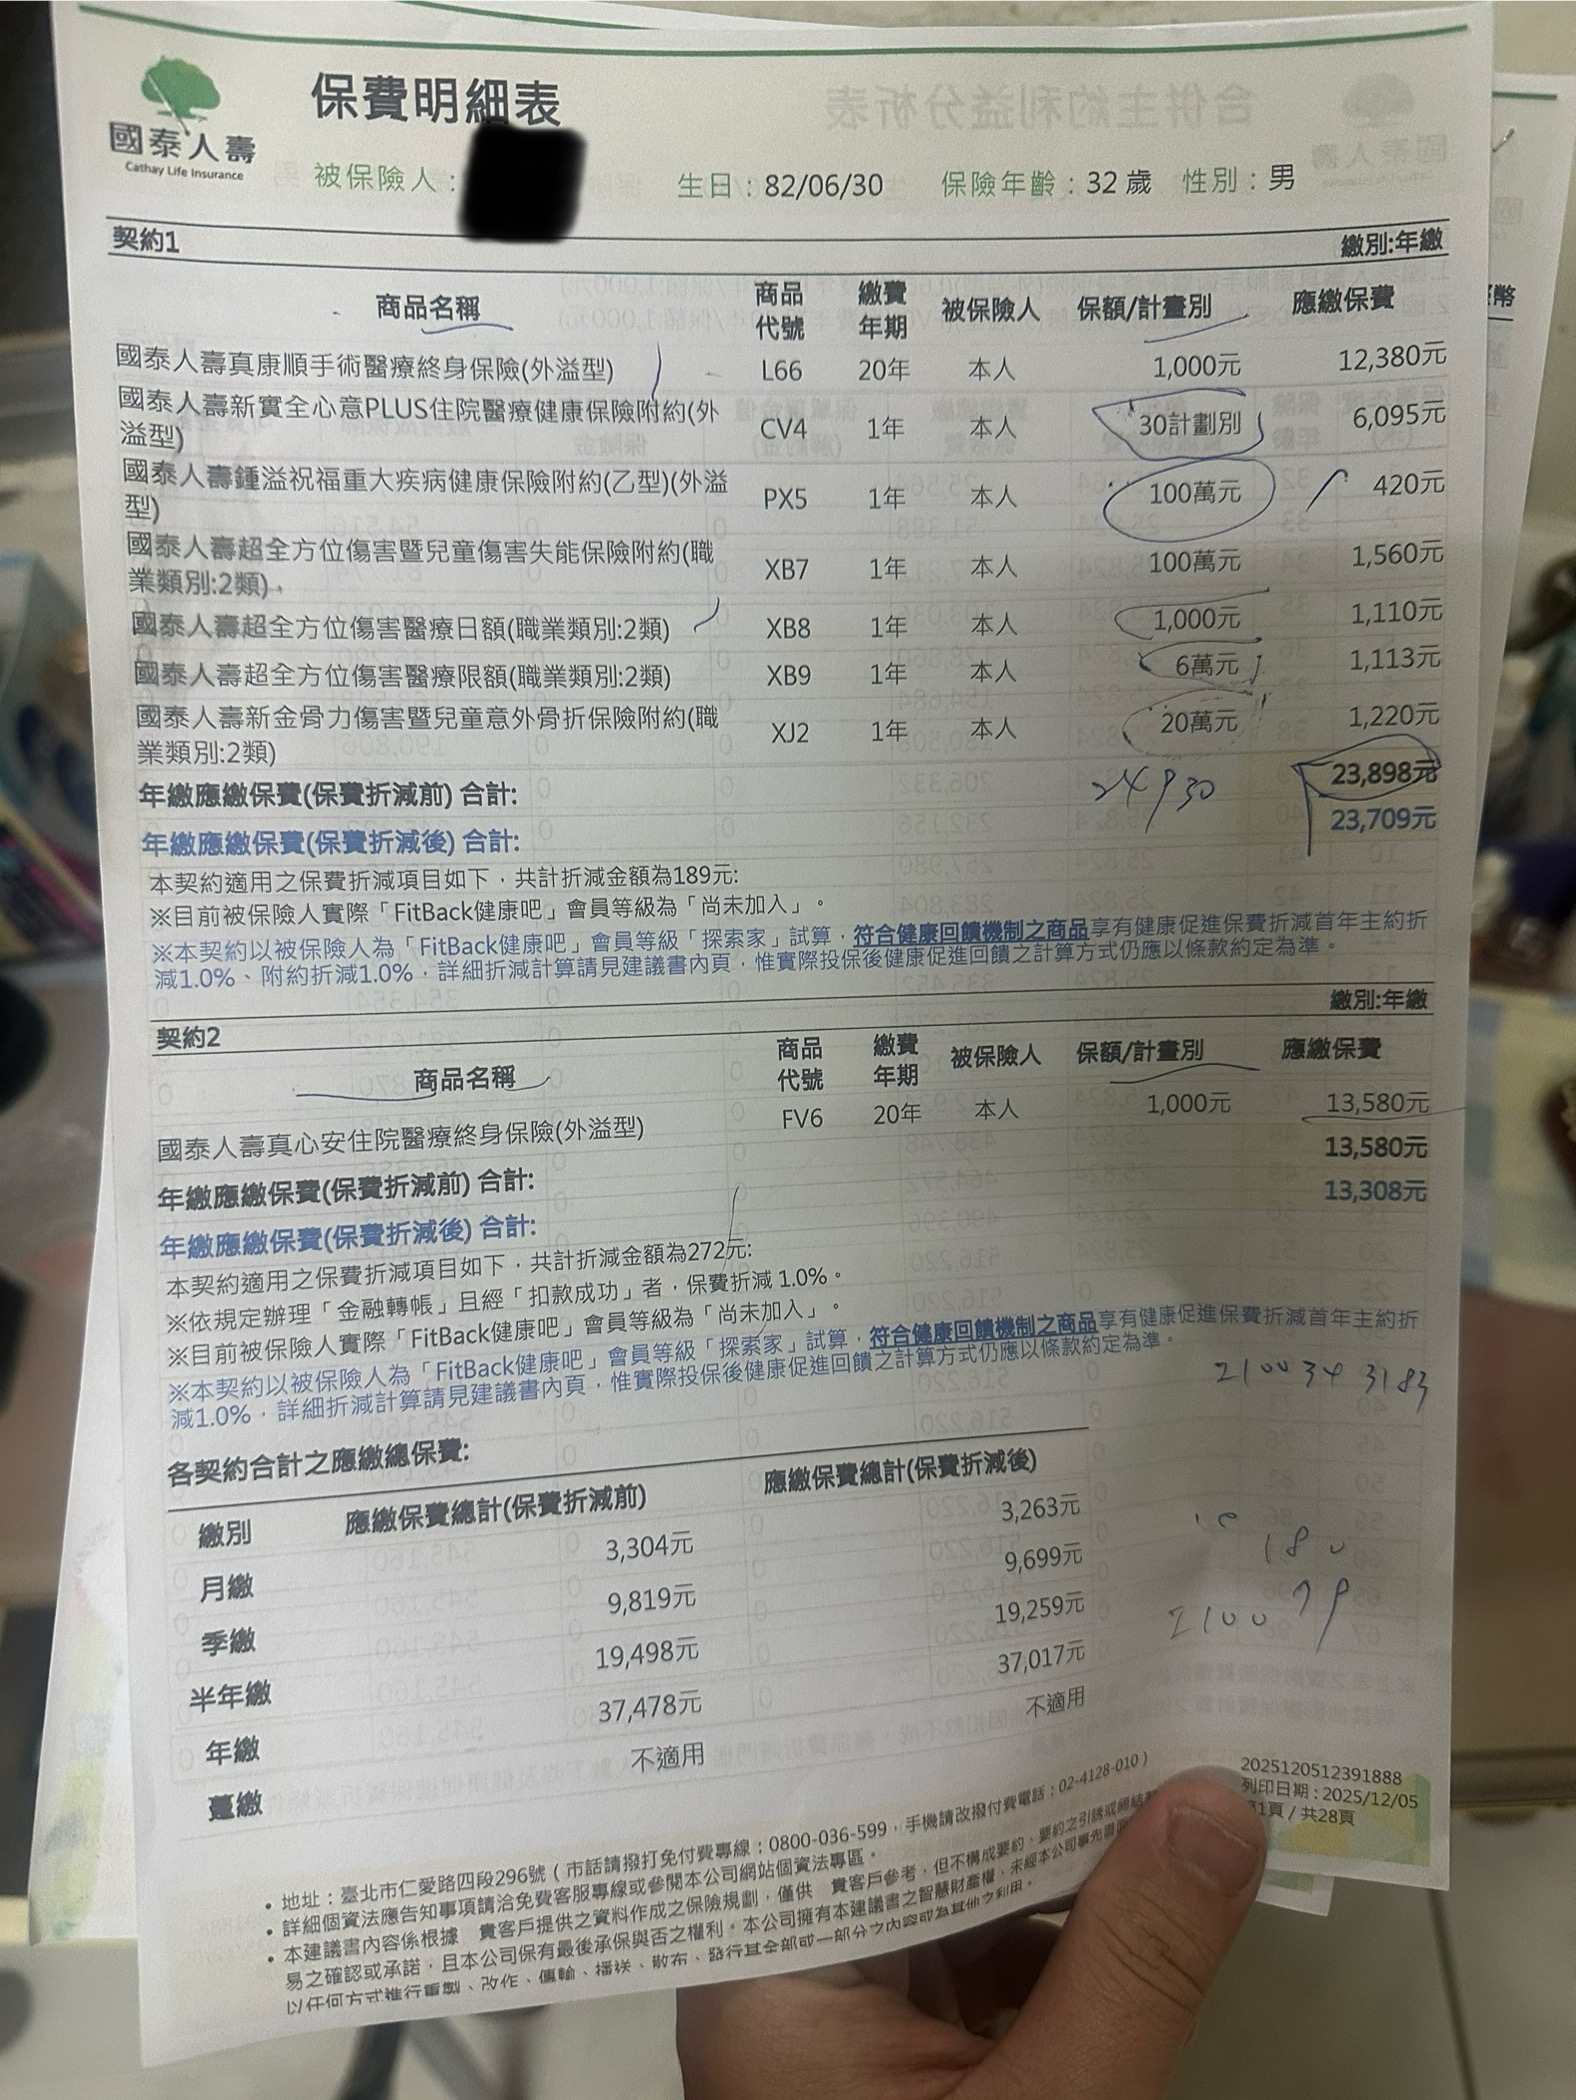 國泰人壽
Cathay Life Insurance
保費明細表
被保險人：
生日：82/06/30 保險年齡：32 歲 性別：男
契約1 繳別:年繳
商品名稱 商品代號 繳費年期 被保險人 保額/計畫別 應繳保費
國泰人壽真康順手術醫療終身保險(外溢型) L66 20年 本人 1,000元 12,380元
國泰人壽新實全心意PLUS住院醫療健康保險附約(外溢型) CV4 1年 本人 30計劃別 6,095元
國泰人壽鍾溢祝福重大疾病健康保險附約(乙型)(外溢型) PX5 1年 本人 100萬元 420元
國泰人壽超全方位傷害暨兒童傷害失能保險附約(職業類別:2類) XB7 1年 本人 100萬元 1,560元
國泰人壽超全方位傷害醫療日額(職業類別:2類) XB8 1年 本人 1,000元 1,110元
國泰人壽超全方位傷害醫療限額(職業類別:2類) XB9 1年 本人 6萬元 1,113元
國泰人壽新金骨力傷害暨兒童意外骨折保險附約(職業類別:2類) XJ2 1年 本人 20萬元 1,220元
年繳應繳保費(保費折減前) 合計: 23,898元
24930
年繳應繳保費(保費折減後) 合計: 23,709元
本契約適用之保費折減項目如下，共計折減金額為189元:
※目前被保險人實際「FitBack健康吧」會員等級為「尚未加入」。
※本契約以被保險人為「FitBack健康吧」會員等級「探索家」試算，符合健康回饋機制之商品享有健康促進保費折減首年主約折
減1.0%、附約折減1.0%，詳細折減計算請見建議書內頁，惟實際投保後健康促進回饋之計算方式仍應以條款約定為準。
契約2 繳別:年繳
商品名稱 商品代號 繳費年期 被保險人 保額/計畫別 應繳保費
國泰人壽真心安住院醫療終身保險(外溢型) FV6 20年 本人 1,000元 13,580元
年繳應繳保費(保費折減前) 合計: 13,580元
年繳應繳保費(保費折減後) 合計: 13,308元
本契約適用之保費折減項目如下，共計折減金額為272元:
※依規定辦理「金融轉帳」且經「扣款成功」者，保費折減 1.0%。
※目前被保險人實際「FitBack健康吧」會員等級為「尚未加入」。
※本契約以被保險人為「FitBack健康吧」會員等級「探索家」試算，符合健康回饋機制之商品享有健康促進保費折減首年主約折
減1.0%，詳細折減計算請見建議書內頁，惟實際投保後健康促進回饋之計算方式仍應以條款約定為準。
2100 34 3183
各契約合計之應繳總保費:
繳別 應繳保費總計(保費折減前) 應繳保費總計(保費折減後)
月繳 3,304元 3,263元
季繳 9,819元 9,699元
半年繳 19,498元 19,259元
年繳 37,478元 37,017元
躉繳 不適用 不適用
180
2100 79
2025120512391888
列印日期：2025/12/05
1頁 / 共28頁
• 地址：臺北市仁愛路四段296號（市話請撥打免付費專線：0800-036-599，手機請改撥付費電話：02-4128-010）
• 詳細個資法應告知事項請洽免費客服專線或參閱本公司網站個資法專區。
• 本建議書內容係根據 貴客戶提供之資料作成之保險規劃，僅供 貴客戶參考，但不構成要約、要約之引誘或締結
易之確認或承諾，且本公司保有最後承保與否之權利。本公司擁有本建議書之智慧財產權，未經本公司事先書
以任何方式進行重製、改作、傳輸、播送、散布、發行其全部或一部分之內容或為其他之利用。